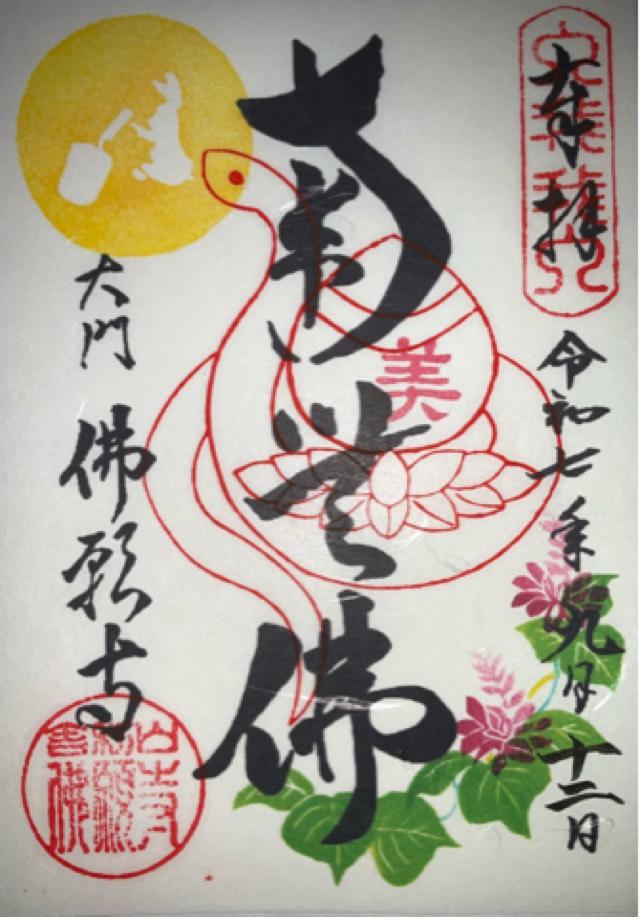 奉拝
令和七年九月十二日
南無佛
美
大門
佛願寺